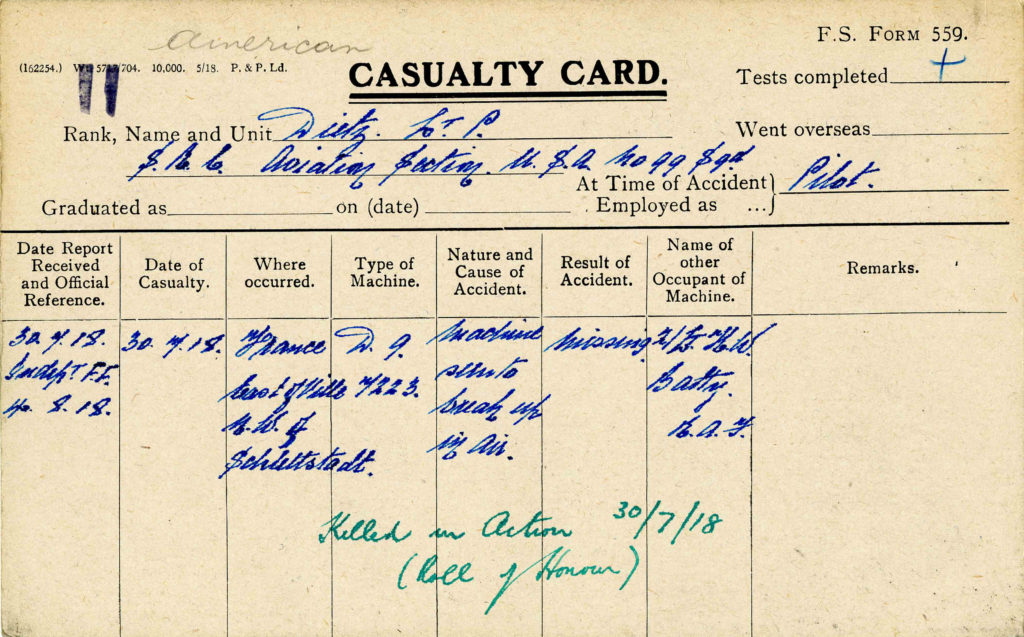 American
F.S. Form 559.
(162254.) 10,000. 5/18. P. & P. Ld.
CASUALTY CARD.
Tests completed +
Rank, Name and Unit Dietz. Lt P.
Went overseas
S.R.C. Aviation Section. U.S.A. No 99 Sqd
At Time of Accident
Employed as ... Pilot.
Graduated as on (date)
Date Report Received and Official Reference.
Date of Casualty.
Where occurred.
Type of Machine.
Nature and Cause of Accident.
Result of Accident.
Name of other Occupant of Machine.
Remarks.
30.7.18.
Indept F.F.
4.8.18.
30.7.18.
France
East of Ville
N.W. of
Schlettstadt.
D. 9.
7223.
Machine
seen to
break up
in Air.
Missing
2/Lt H.W.
Batty.
R.A.F.
Killed in Action 30/7/18
(Roll of Honour)